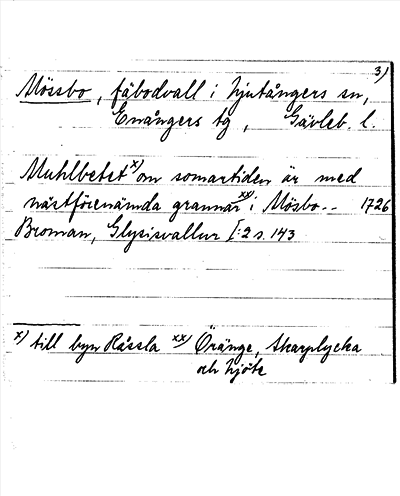 3)
Mössbo, fäbodvall i Njutångers sn,
Enångers tg, Gävleb. l.
Muhlbetet x) om somartiden är med
närstförenämda grannar xx) i Mösbo-- 1726
Broman, Glysisvallur I:2 s. 143
x) till byn Råssla xx) Öränge, Skarplycka
och Njöte